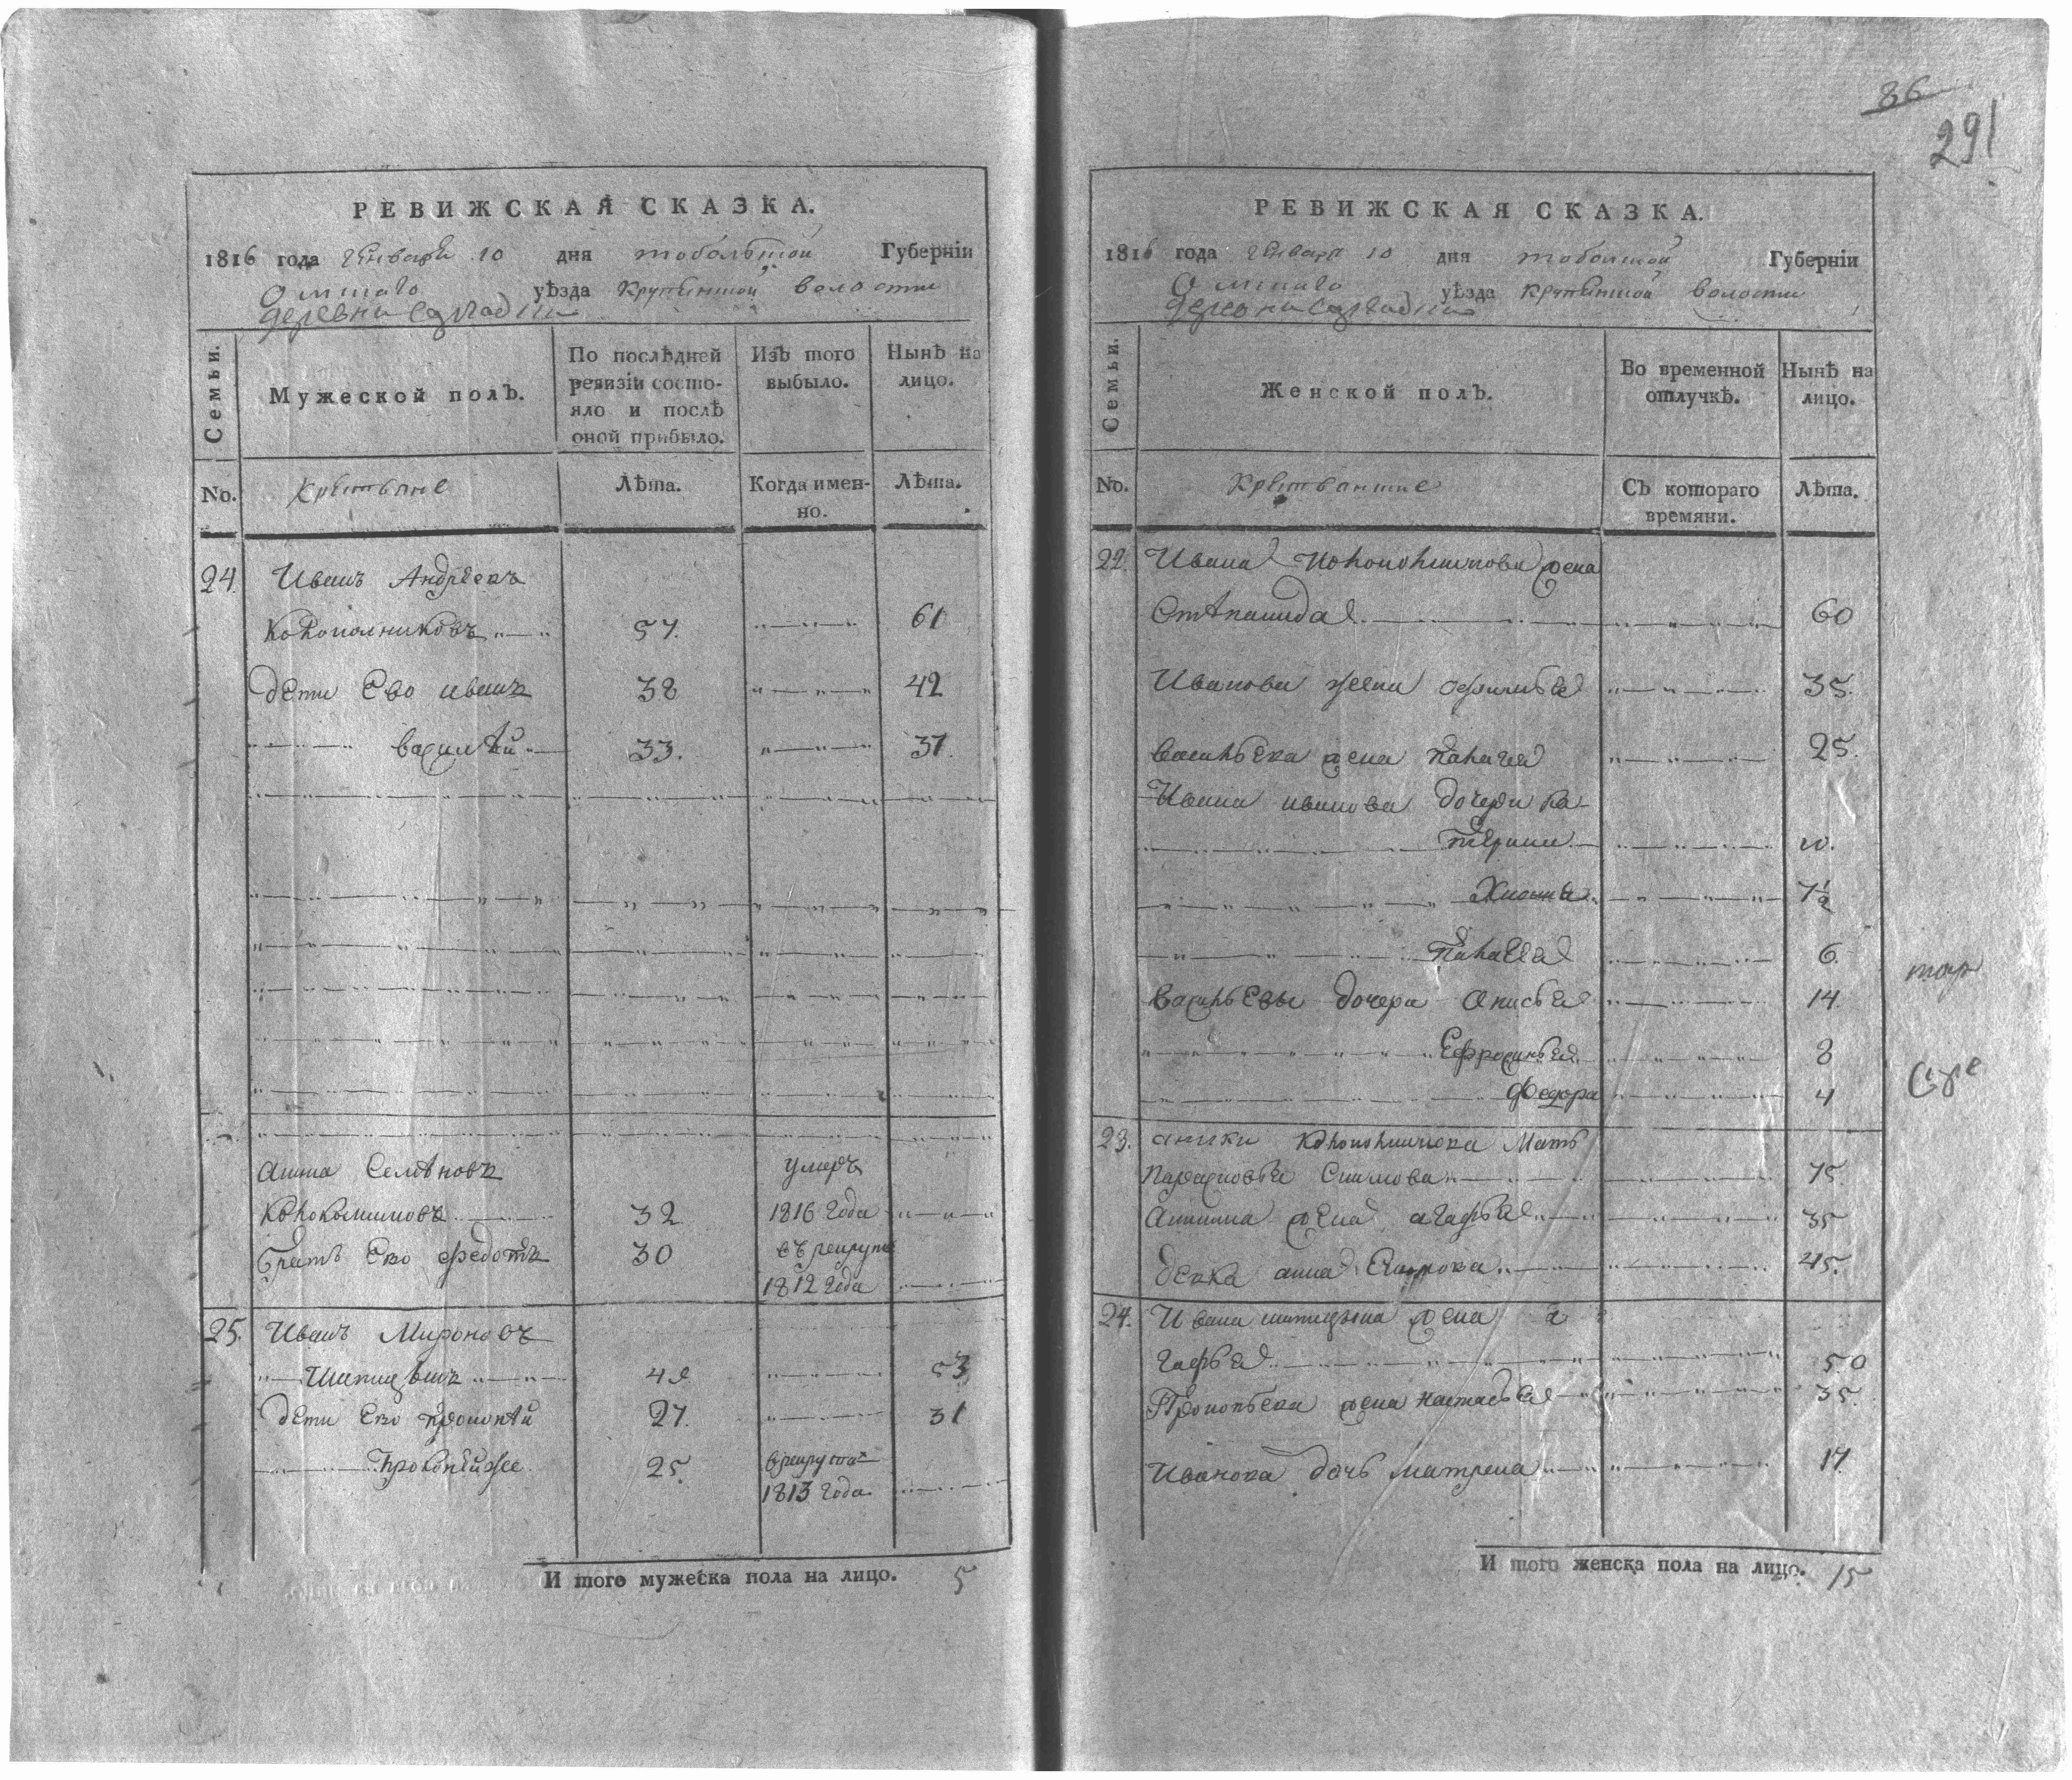 86
291
РЕВИЖСКАЯ СКАЗКА.
1816 года Генваря 10 дня тобольской Губерніи
Омскаго уѣзда Крупянской волости
деревни
Семьи.
Мужеской полъ.
По послѣдней ревизіи состояло и послѣ оной прибыло.
Изъ того выбыло.
Нынѣ на лицо.
No.
Крестьяне
Лѣта.
Когда именно.
Лѣта.
24. Иванъ Андрѣевъ
Коконолниковъ 57. 61
дети Ево иванъ 38 42
василѣй 33. 37.
аника Семѣновъ умеръ
32 1816 года
братъ Ево федотъ 30 въ рекруты
1812 года
25. Иванъ Мироновъ
Шипицынъ 49 53
дети Ево прокопѣй 27. 31
Прокопѣйже 25. в рекрута
1813 года
И того мужеска пола на лицо. 5
РЕВИЖСКАЯ СКАЗКА.
1816 года Генваря 10 дня тобольской Губерніи
Омскаго уѣзда крупянской волости
деревни
Семьи.
Женской полъ.
Во временной отлучкѣ.
Нынѣ на лицо.
No.
Крестьянские
Съ котораго времяни.
Лѣта.
22. Ивана жена
Стѣпанида 60
Иванова жена офимья 35.
Васильева жена палагея 25.
Ивана иванова дочери ка-
терина 10.
Хиония 7½
палагея 6.
васильевы дочери Анисья 14.
Ефросинья 8
Федора 4
23. аники мать
Парасковья 75.
Аникина жена агафья 35
девка анна 45.
24. Ивана шипицына жена а
гафья 50
Прокопьева жена настасья 35.
Иванова дочь матрена 17.
И того женска пола на лицо. 15